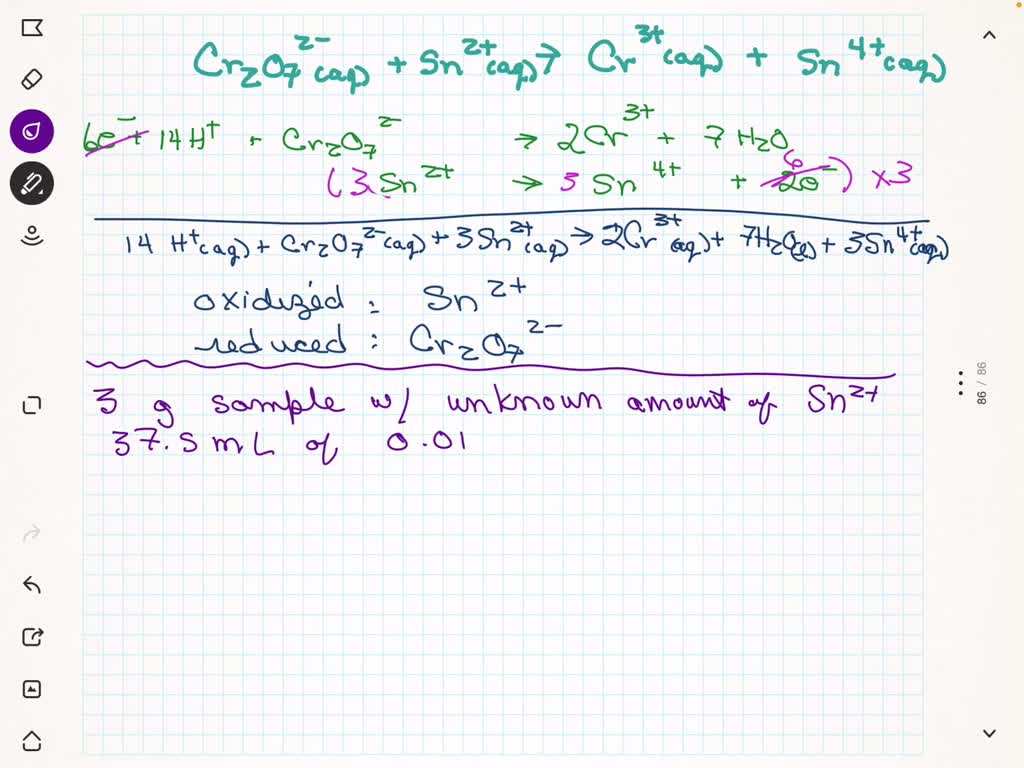 Cr₂O₇²⁻(aq) + Sn²⁺(aq) → Cr³⁺(aq) + Sn⁴⁺(aq)
6e⁻ + 14H⁺ + Cr₂O₇²⁻ → 2Cr³⁺ + 7H₂O
(3 Sn²⁺ → 3 Sn⁴⁺ + 2e⁻ 6) x3
14 H⁺(aq) + Cr₂O₇²⁻(aq) + 3Sn²⁺(aq) → 2Cr³⁺(aq) + 7H₂O(l) + 3Sn⁴⁺(aq)
oxidized : Sn²⁺
reduced : Cr₂O₇²⁻
3 g sample w/ unknown amount of Sn²⁺
37.5 mL of 0.01
86 / 86